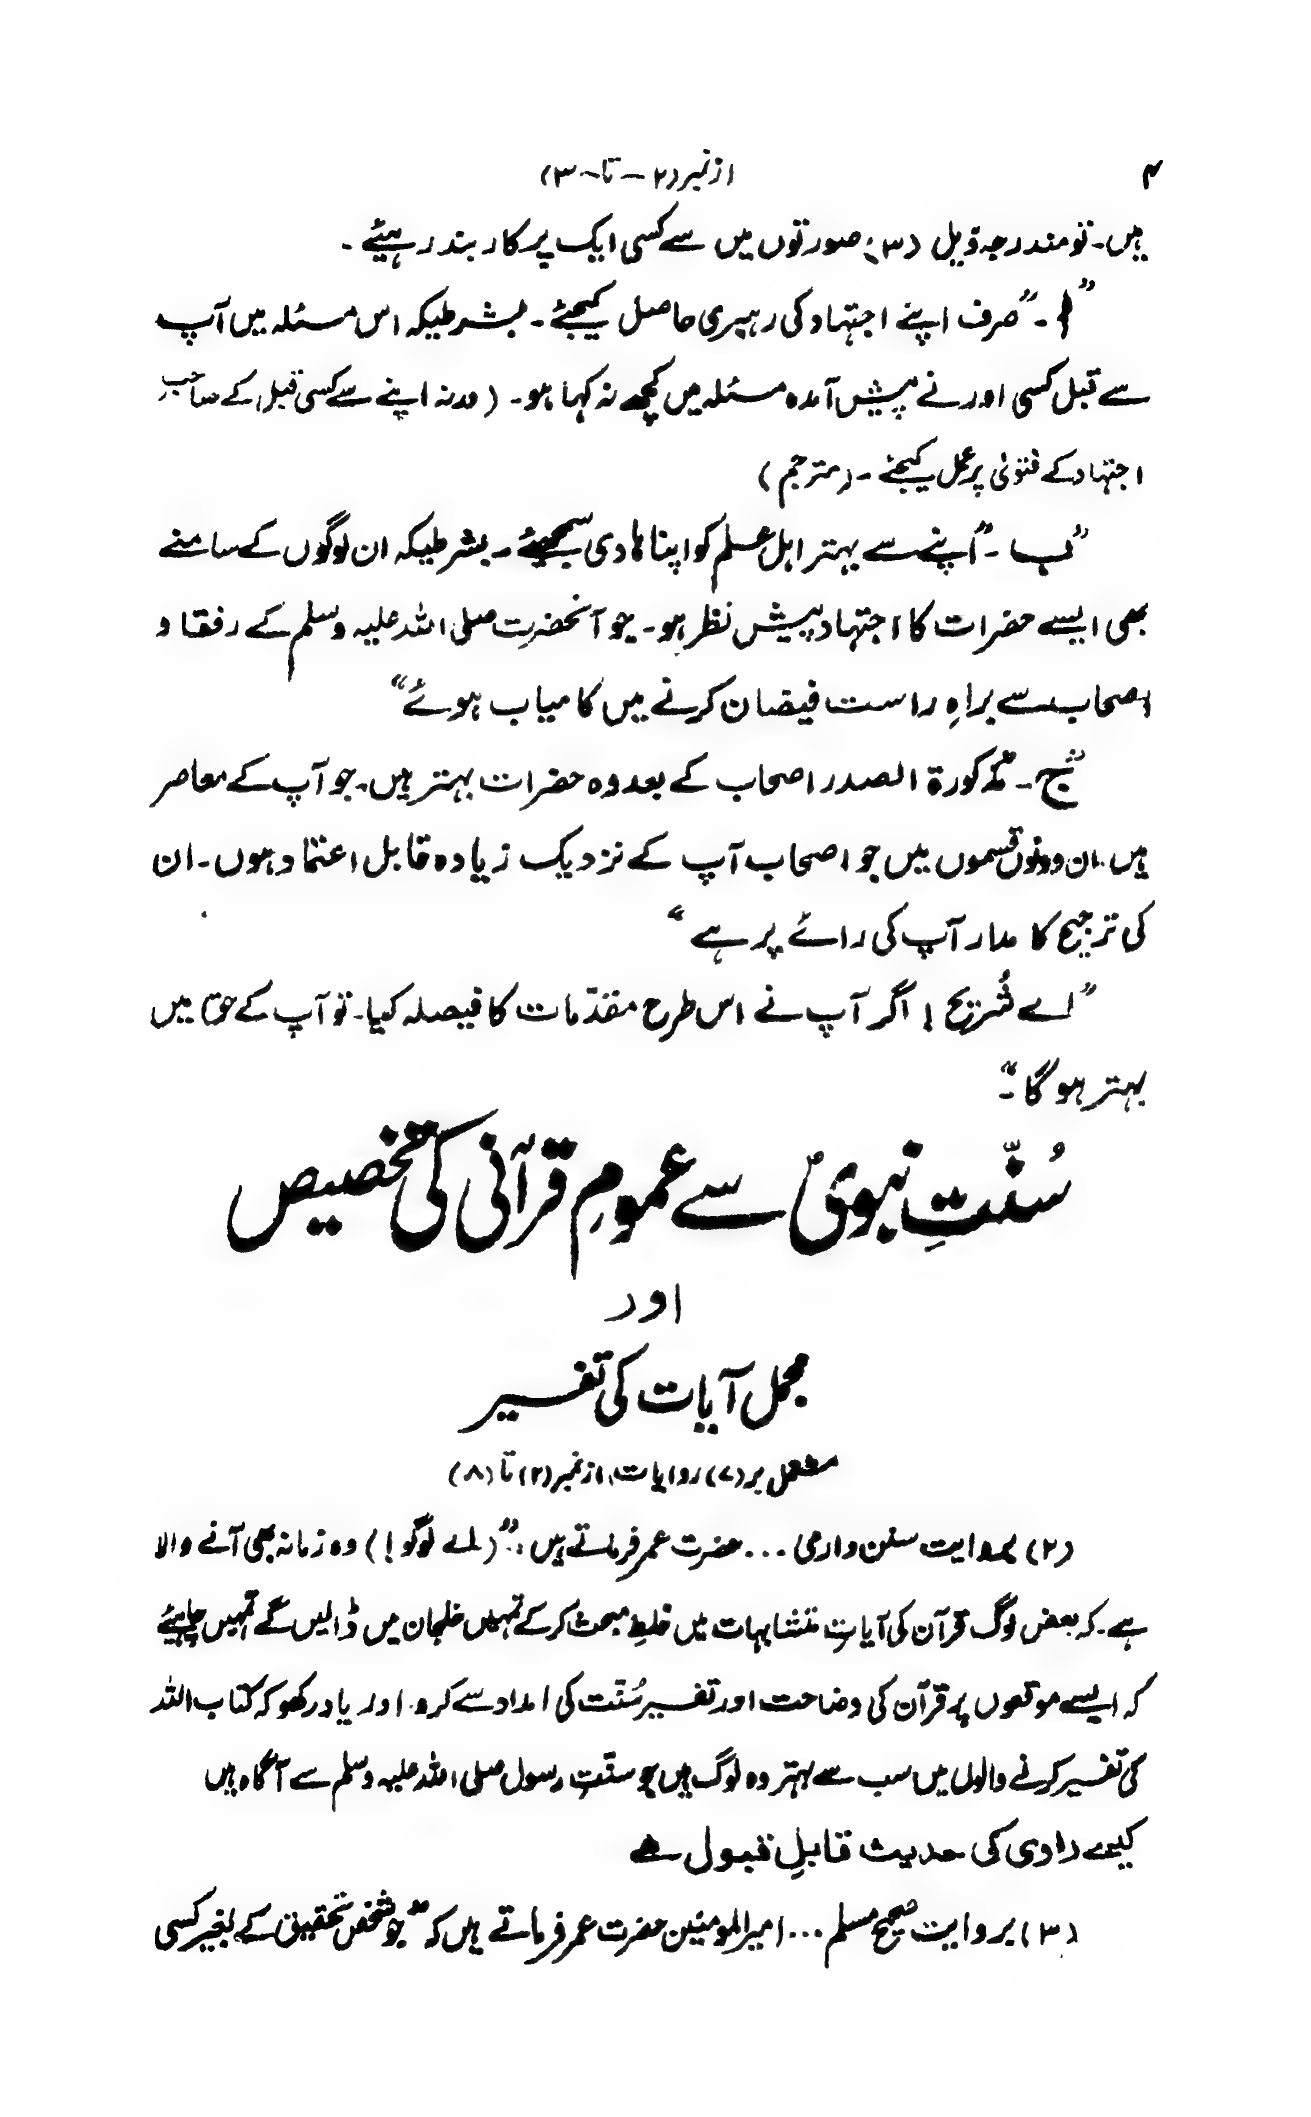 ۴
از نمبر (۲ – تا – ۳)
ہیں۔ تو مندرجہ ذیل (۳) صورتوں میں سے کسی ایک پر کاربند رہیئے ۔
”ا ۔“ صرف اپنے اجتہاد کی رہبری حاصل کیجئے ۔ بشرطیکہ اس مسئلہ میں آپ
سے قبل کسی اور نے پیش آمدہ مسئلہ میں کچھ نہ کہا ہو۔ (ورنہ اپنے سے کسی قبل کے صاحب
اجتہاد کے فتویٰ پر عمل کیجئے ۔ (مترجم)
”ب ۔“ اپنے سے بہتر اہل علم کو اپنا ہادی سمجھیئے ۔ بشرطیکہ ان لوگوں کے سامنے
بھی ایسے حضرات کا اجتہاد پیش نظر ہو۔ جو آنحضرت صلی اللہ علیہ وسلم کے رفقا و
اصحاب سے براہِ راست فیضان کرنے میں کامیاب ہوئے“
”ج ۔“ مذکورۃ الصدر اصحاب کے بعد وہ حضرات بہتر ہیں۔ جو آپ کے معاصر
ہیں۔ ان دونوں قسموں میں جو اصحاب آپ کے نزدیک زیادہ قابل اعتماد ہوں۔ ان
کی ترجیح کا مدار آپ کی رائے پر ہے “
”اے شُریح ! اگر آپ نے اس طرح مقدّمات کا فیصلہ کیا۔ تو آپ کے حق میں
بہتر ہوگا ۔“
سُنّتِ نبویؐ سے عمومِ قرآنی کی تخصیص
اور
مجمل آیات کی تفسیر
مشتمل بر (۷) روایات، از نمبر (۲) تا (۸)
(۲) بروایت سنن دارمی ... حضرت عمر فرماتے ہیں : ”(اے لوگو !) وہ زمانہ بھی آنے والا
ہے۔ کہ بعض لوگ قرآن کی آیاتِ متشابہات میں خلطِ مبحث کر کے تمہیں خلجان میں ڈالیں گے تمہیں چاہیئے
کہ ایسے موقعوں پر قرآن کی وضاحت اور تفسیر سُنّت کی امداد سے کرو۔ اور یاد رکھو کہ کتاب اللہ
کی تفسیر کرنے والوں میں سب سے بہتر وہ لوگ ہیں جو سنّتِ رسول صلی اللہ علیہ وسلم سے آگاہ ہیں
کیسے راوی کی حدیث قابلِ قبول ہے
(۳) بروایت صحیح مسلم ... امیرالمومنین حضرت عمر فرماتے ہیں کہ ”جو شخص تحقیق کے بغیر کسی